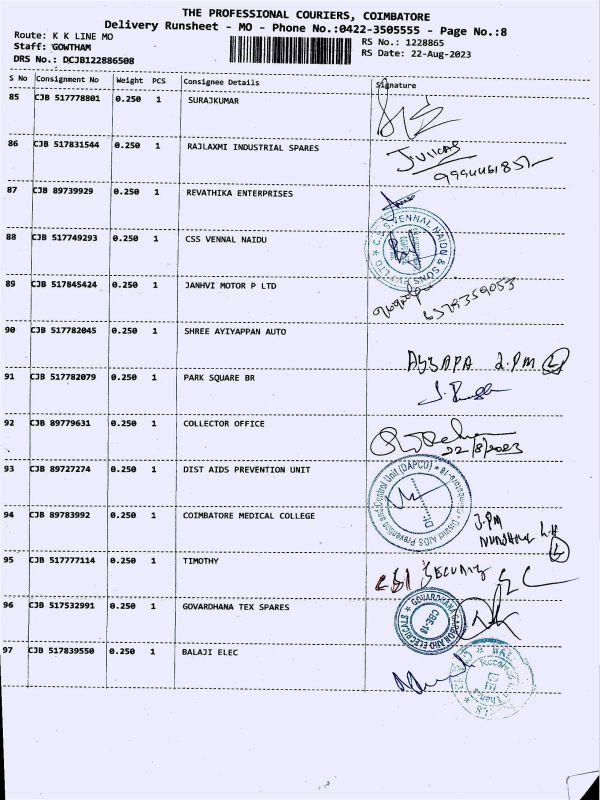 THE PROFESSIONAL COURIERS, COIMBATORE
Delivery Runsheet - MO - Phone No.:0422-3505555 - Page No.:8
Route: K K LINE MO
RS No.: 1228865
Staff: GOWTHAM
RS Date: 22-Aug-2023
DRS No.: DCJB122886508
S No Consignment No Weight PCS Consignee Details Signature
85 CJB 517778801 0.250 1 SURAJKUMAR
86 CJB 517831544 0.250 1 RAJLAXMI INDUSTRIAL SPARES
87 CJB 89739929 0.250 1 REVATHIKA ENTERPRISES
88 CJB 517749293 0.250 1 CSS VENNAL NAIDU
C.S.S. VENNAL NAIDU & SONS
89 CJB 517845424 0.250 1 JANHVI MOTOR P LTD
6379359053
90 CJB 517782045 0.250 1 SHREE AYIYAPPAN AUTO
2.PM
91 CJB 517782079 0.250 1 PARK SQUARE BR
92 CJB 89779631 0.250 1 COLLECTOR OFFICE
22/8/2023
93 CJB 89727274 0.250 1 DIST AIDS PREVENTION UNIT
District AIDS Prevention and Control Unit (DAPCU) Coimbatore-18
94 CJB 89783992 0.250 1 COIMBATORE MEDICAL COLLEGE
95 CJB 517777114 0.250 1 TIMOTHY
SECURITY
96 CJB 517532991 0.250 1 GOVARDHANA TEX SPARES
GOVARDHANA CARBON AND ELECTRICALS
CBE-18
97 CJB 517839550 0.250 1 BALAJI ELEC